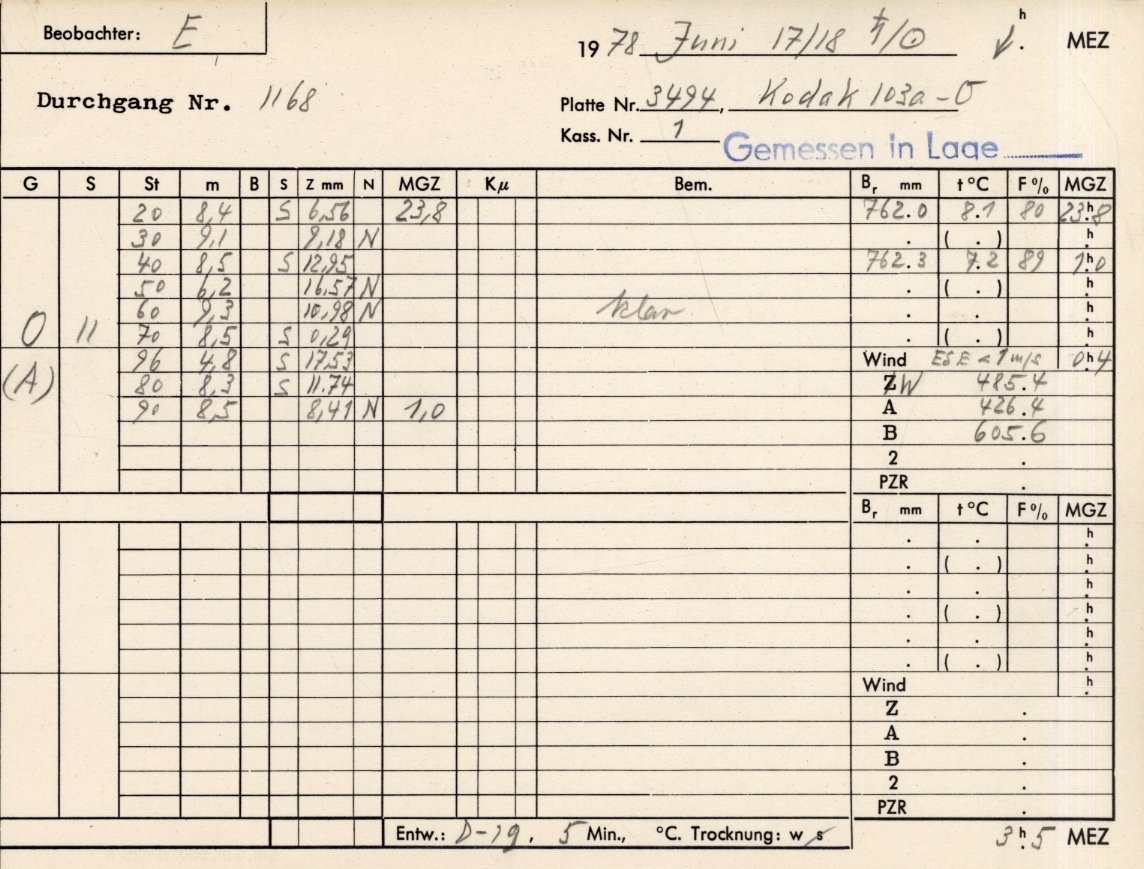 Beobachter: E
1978 Juni 17/18 ♄/☉ h . MEZ
Durchgang Nr. 1168
Platte Nr. 3494, Kodak 103a-O
Kass. Nr. 1
Gemessen in Lage
G S St m B S Z mm N MGZ Kµ Bem. Br mm t °C F % MGZ
20 8,4 S 6,56 23,8 762.0 8.1 80 23h.8
30 9,1 9,18 N . ( . ) h.
40 8,5 S 12,95 762.3 7.2 89 1h.0
50 6,2 16,57 N . ( . ) h.
60 9,3 10,98 N klar . . h.
O 11 70 8,5 S 0,29 . ( . ) h.
96 4,8 S 17,53 Wind ESE < 1 m/s 0h.4
(A) 80 8,3 S 11.74 Z W 485.4
90 8,5 8,41 N 1,0 A 426.4
B 605.6
2 .
PZR .
Br mm t °C F % MGZ
. . h.
. ( . ) h.
. . h.
. ( . ) h.
. . h.
. ( . ) h.
Wind h.
Z .
A .
B .
2 .
PZR .
Entw.: D-19. 5 Min., °C. Trocknung: w s 3h.5 MEZ